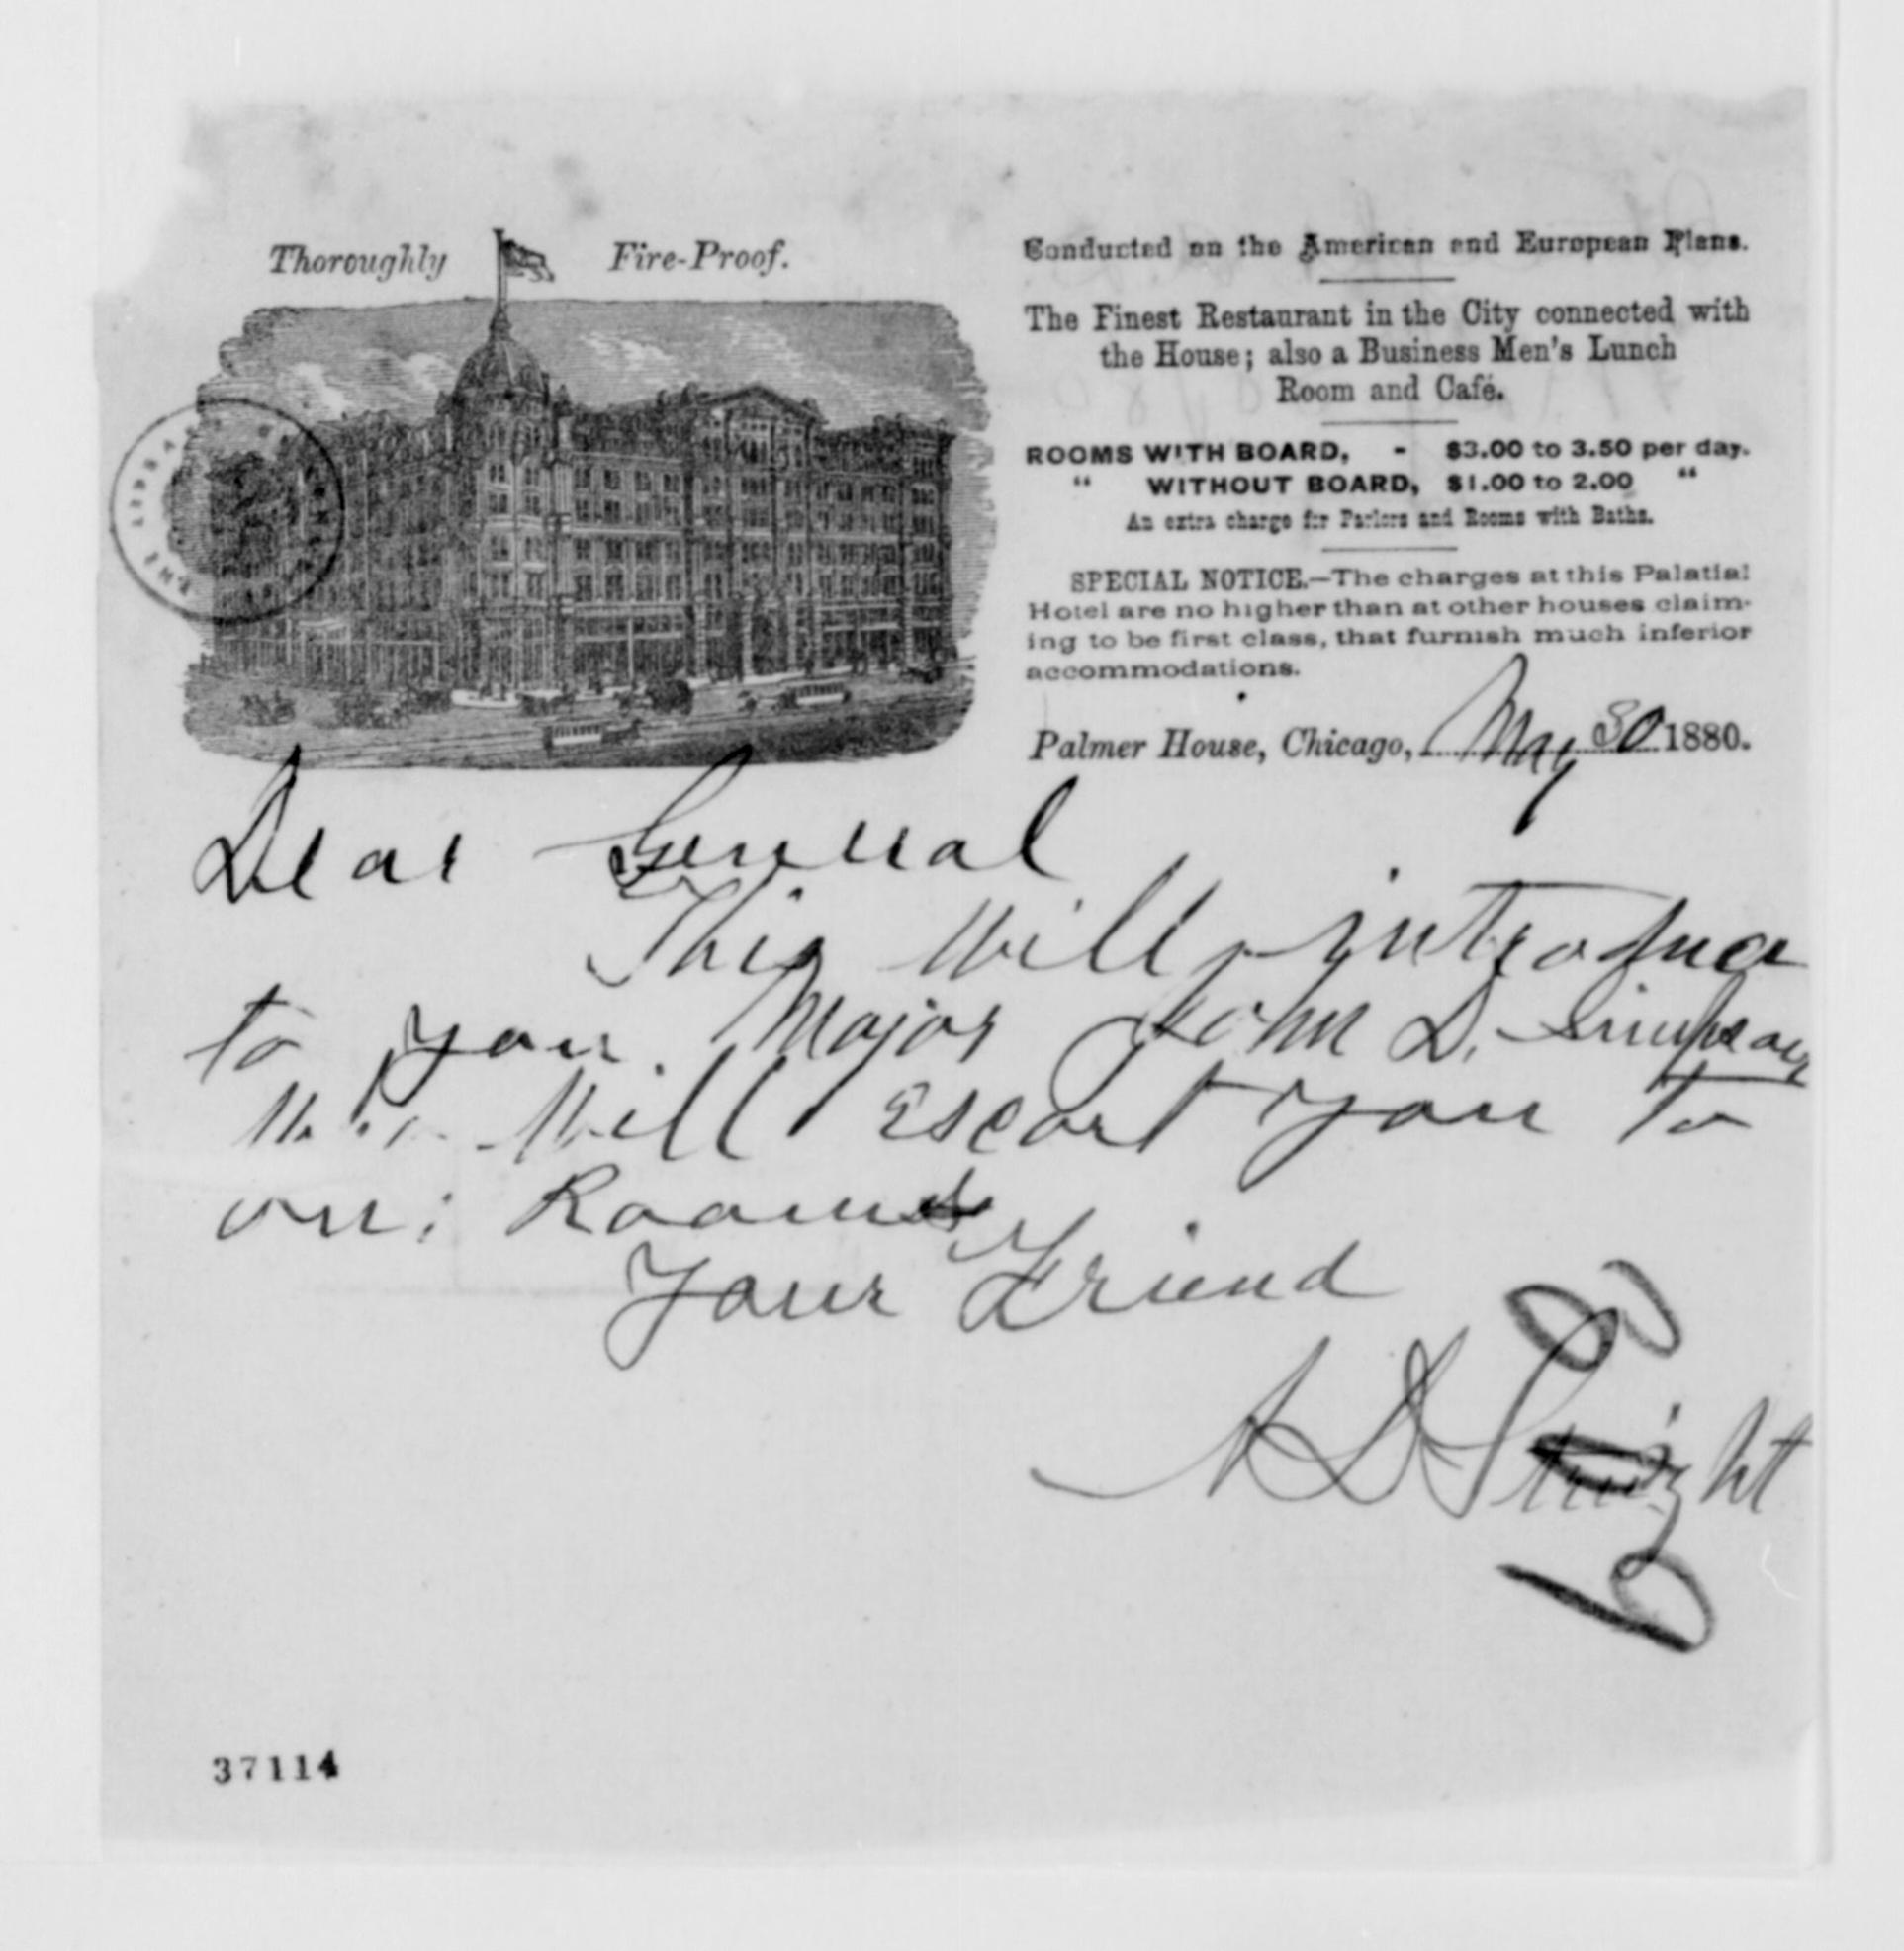 Thoroughly Fire-Proof.
Conducted on the American and European Plans.
The Finest Restaurant in the City connected with
the House; also a Business Men's Lunch
Room and Café.
ROOMS WITH BOARD, - $3.00 to 3.50 per day.
“ WITHOUT BOARD, $1.00 to 2.00 “
An extra charge for Parlors and Rooms with Baths.
SPECIAL NOTICE.—The charges at this Palatial
Hotel are no higher than at other houses claim-
ing to be first class, that furnish much inferior
accommodations.
Palmer House, Chicago, May 30 1880.
Dear General
This Will introduce
to you Major John D. Simpson
Who Will Escort you to
our Rooms
Your Friend
A D Streight
37114